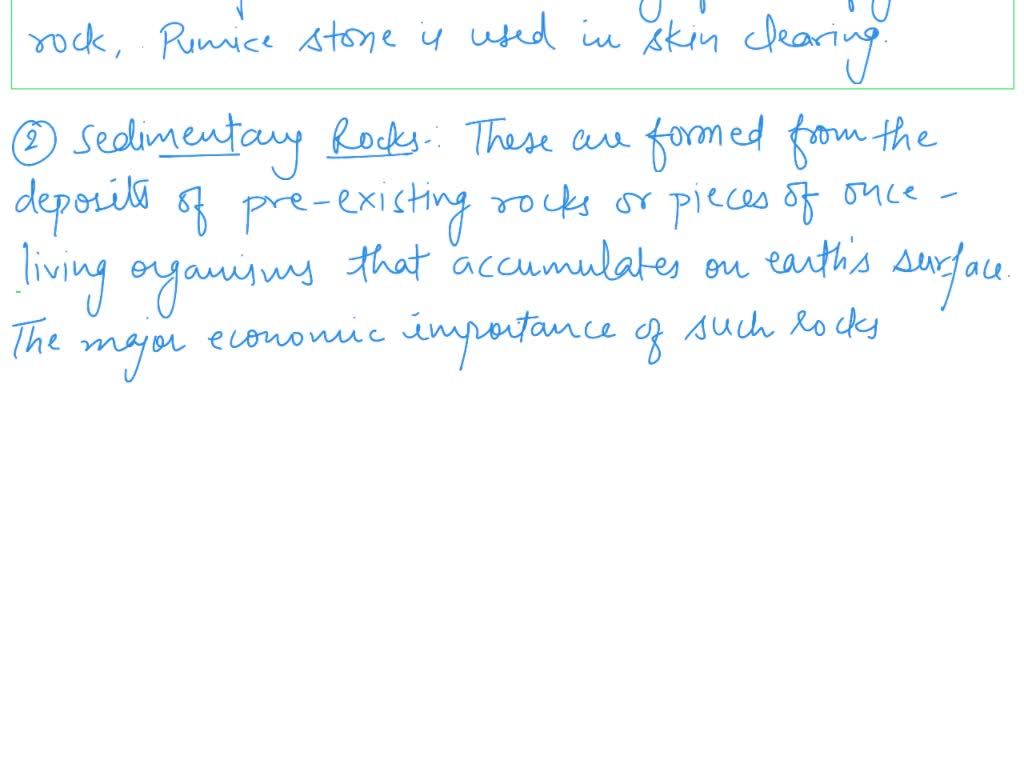 rock, Pumice stone is used in skin clearing.
② Sedimentary Rocks:- These are formed from the
deposits of pre-existing rocks or pieces of once-
living organisms that accumulates on earth's surface.
The major economic importance of such rocks